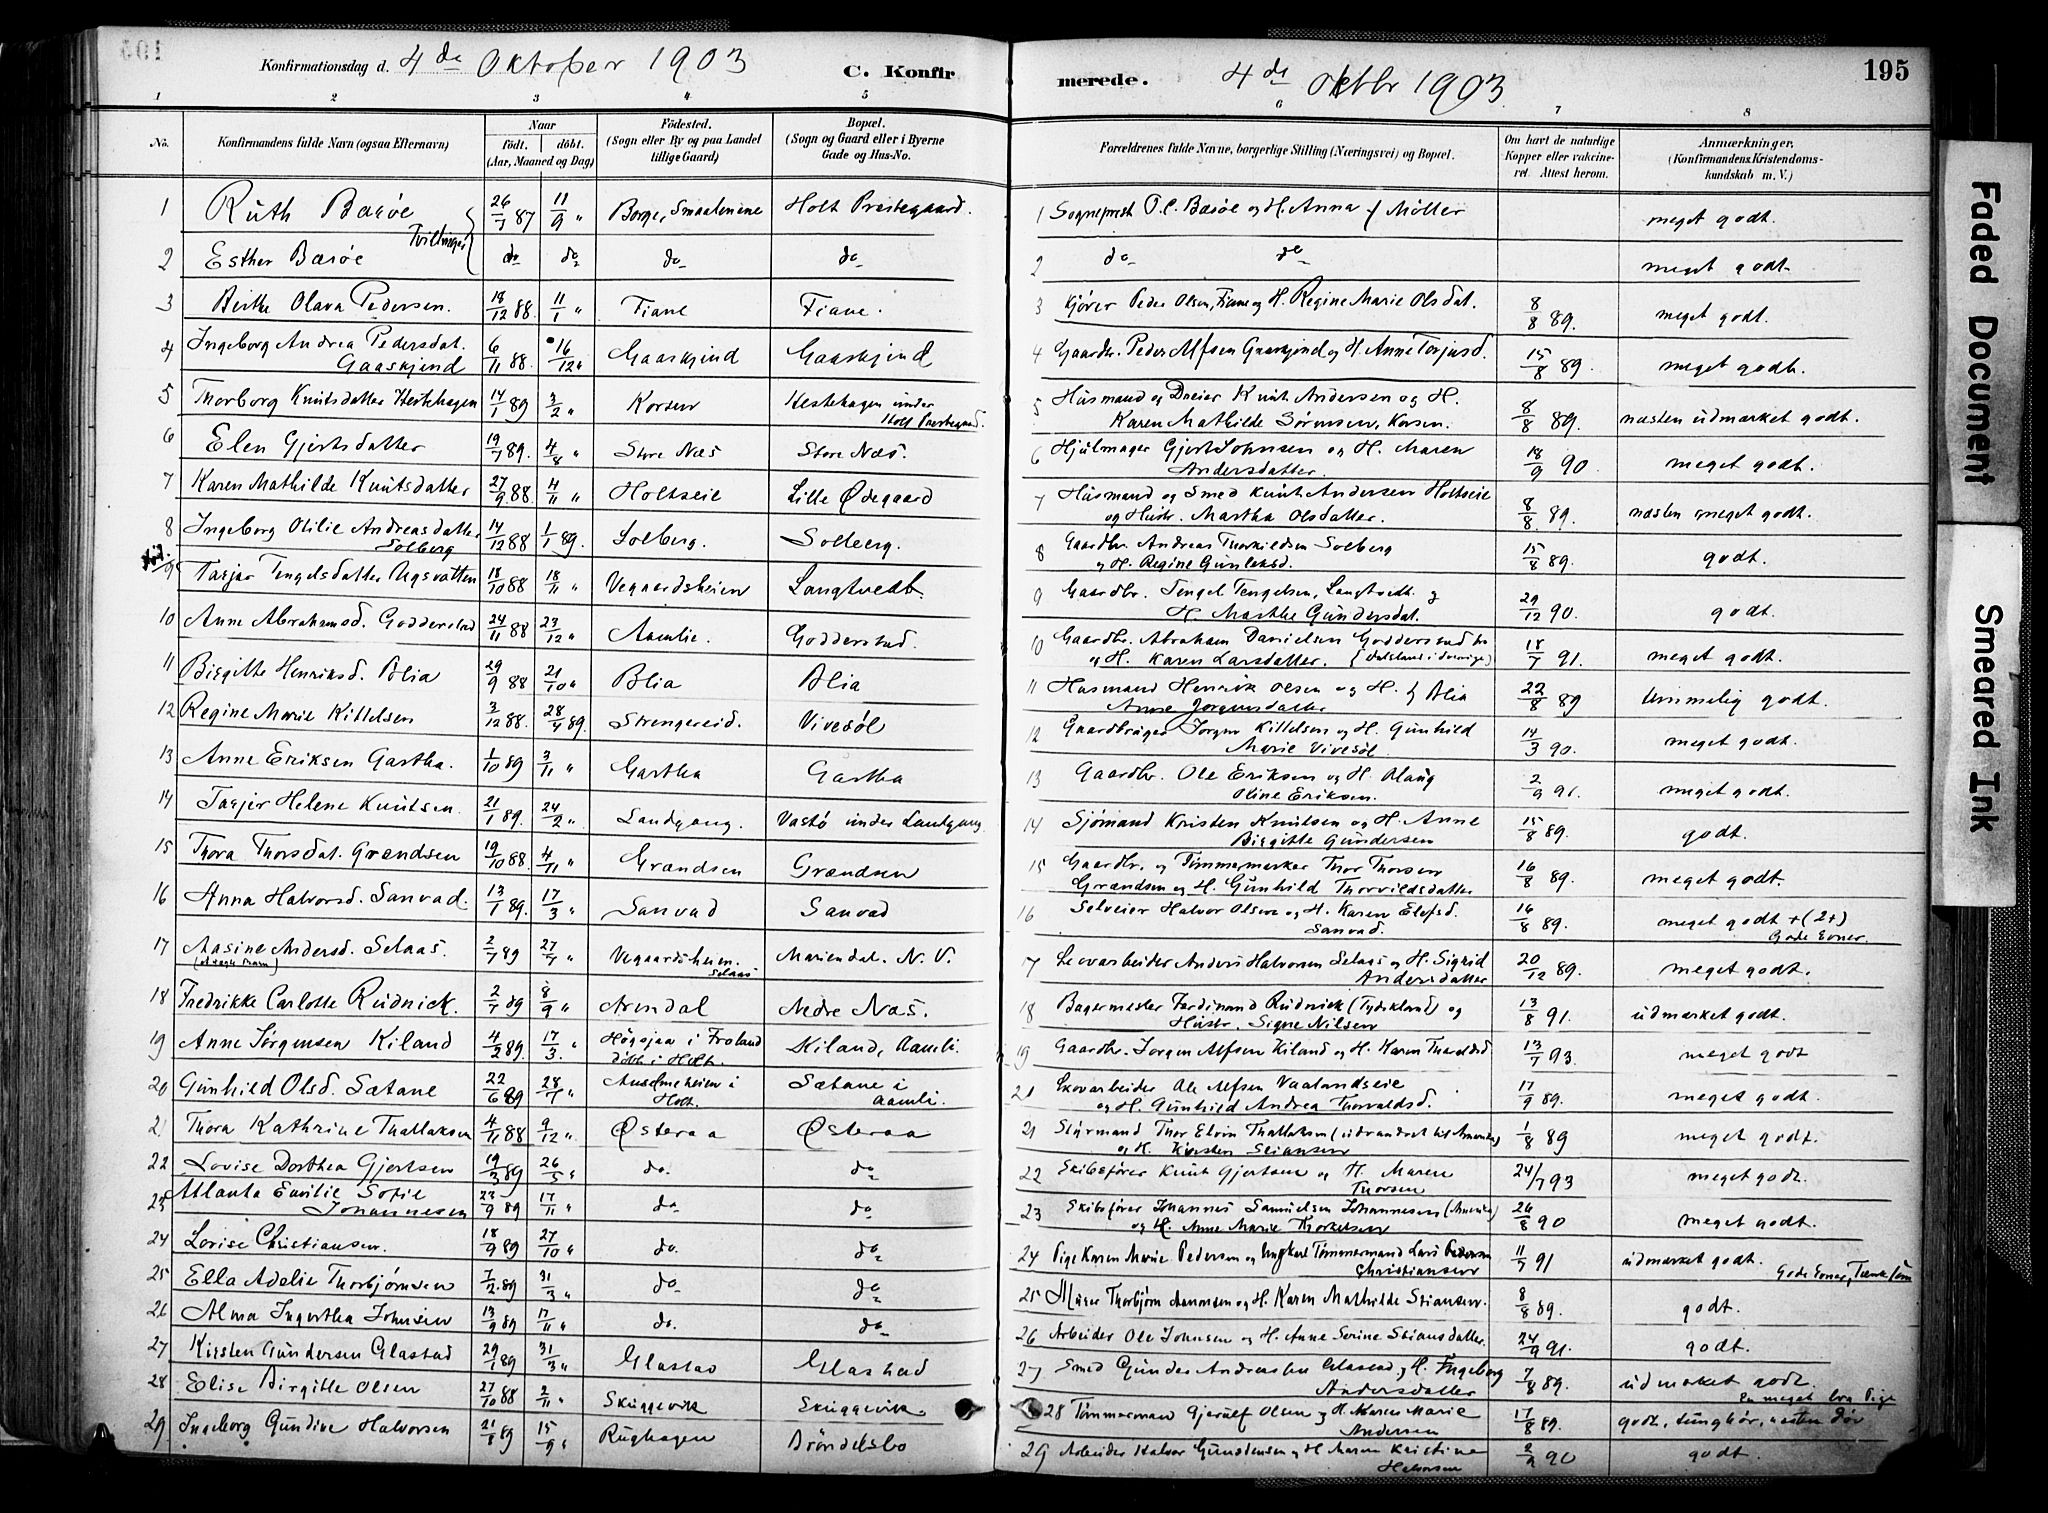 Konfirmationsdag d. 4de Oktober 1903
C. Konfirmerede.
4de Oktbr 1903
195
1 2 3 4 5 6 7 8
No. Konfirmandens fulde Navn (ogsaa Efternavn) Naar født. døbt. (Aar, Maaned og Dag) Fødested. (Sogn eller By og paa Landet tillige Gaard) Bopæl. (Sogn og Gaard eller i Byerne Gade og Hus-No.
Forældrenes fulde Navne, borgerlige Stilling (Næringsvei) og Bopæl. Om havt de naturlige Kopper eller vakcineret. Attest herom. Anmærkninger. (Konfirmandens Kristendomskundskab m. V.)
1 Ruth Barøe 26/7 87 11/9 " Borge, Smaalenene Holt Prestegaard.
Tvillinger
2 Esther Barøe do do do do
3 Berthe Olava Pedersen. 18/12 88 11/1 " Fiane Fiane.
4 Ingeborg Andrea Pedersdat. Gaaskjend 6/11 88. 16/12 " Gaaskjend Gaaskjend
5 Thorborg Knutsdatter Hestehagen 14/1 89 3/2 " Korsen Hestehagen under Holt Prestegaard.
6 Elen Gjertsdatter 19/7 89. 4/8 " Store Næs Store Næs.
7 Karen Mathilde Knutsdatter 27/9 88. 4/11 " Holtseie Lille Ødegaard
8 Ingeborg Otilie Andreasdatter Solberg 14/12 88 1/1 89. Solberg. Solberg.
9 Tarjer Tengelsdatter Ugsvatten 18/10 88 18/11 " Vegaardsheien Langtvedt.
10 Anne Abrahamsd. Godderstad 24/11 88 23/12 " Aamlie. Godderstad.
11 Birgitte Henriksd. Blia 29/9 88 21/10 " Blia Blia
12 Regine Marie Kittelsen 3/12 88. 28/4 89. Strengereid. Vivesøl
13 Anne Eriksen Gartha. 1/10 89 3/11 " Gartha Gartha
14 Tarjer Helene Knutsen. 21/1 89. 24/2 " Landgang. Vastø under Landgang.
15 Thora Thorsdat. Grændsen 19/10 88. 4/11 " Grændsen Grændsen
16 Anna Halvorsd. Sanvad. 13/1 89. 17/3 " Sanvad Sanvad
17 Aasine Andersd. Selaas. 2/7 89 27/7 " Vegaardsheien. Selaas Mariendal. N. V.
18 Fredrikke Carlotte Rudnick. 2/7 89 8/9 " Arendal Nedre Næs.
19 Anne Jørgensen Kiland 4/2 89. 17/3. " Høgsjaa i Froland døbt i Holt. Kiland, Aamli.
20 Gunhild Olsd. Sætane 22/6 89 28/7 " Auselmeheien i Holt. Sætane i Aamli.
21 Thora Kathrine Thallaksen 4/11 88 9/12 " Østeraa Østeraa
22 Lovise Dorthea Gjertsen 19/3 89 26/5 " do. do
23 Atlanta Emilie Sofie Johannesen 23/9 89 17/11 " do do
24 Lovise Christiansen. 18/9 89 27/10 " do. do
25 Ella Adelie Thorbjørnsen 7/2 89 31/3 " do do
26 Alma Ingertha Johnsen 13/9 89 17/11 " do. do
27 Kirsten Gundersen Glastad 29/1 89 31/3 " Glastad Glastad
28 Elise Birgitte Olsen 27/10 88 2/11 " Skuggevik Skuggevik
29 Ingeborg Gundine Halvorsen 21/8 89 15/9 " Rughagen Brøndelsbo
1 Sogneprest O. C. Barøe og H. Anna f Møller meget godt.
2 do do meget godt.
3 Kjører Peder Olsen, Fiane og H. Regine Marie Olsdat. 8/8 89. meget godt.
4 Gaardbr. Peder Alfsen Gaaskjend og H. Anne Torjusd. 15/8 89. meget godt.
5 Husmand og Dreier Knut Andersen og H. Karen Mathilde Sørensen, Korsen. 8/8 89. næsten udmærket godt.
6 Hjulmager Gjert Johnsen og H. Maren Andersdatter. 18/9 90. meget godt.
7 Husmand og Smed Knut Andersen Holtseie og Hustr. Martha Olsdatter. 8/8. 89. næsten meget godt.
8 Gaardbr. Andreas Thorkildsen Solberg og H. Regine Gunleksd. 15/8 89. godt.
9 Gaardbr. Tengel Tengelsen, Langtvedt og H. Marthe Gundersdat. 29/12 90. godt.
10 Gaardbr. Abraham Danielsen Godderstad og H. Karen Larsdatter. (Dalsland i Sverige) 18/7 91. meget godt.
11 Husmand Henrik Olsen og H. Anne Jørgensdatter Blia 22/8 89 temmelig godt.
12 Gaardbruger Jørgen Kittelsen og H. Gunhild Marie Vivesøl 14/3 90. meget godt.
13 Gaardbr. Ole Eriksen og H. Olaug Oline Eriksen. 2/9 91. meget godt.
14 Sjømand Kristen Knutsen og H. Anne Birgitte Gundersen 15/8 89. godt.
15 Gaardbr. og Tømmermærker Thor Thorsen Grændsen og H. Gunhild Thorvildsdatter 16/8 89. meget godt.
16 Selveier Halvor Olsen og H. Karen Elefsd. Sanvad. 16/8 89. meget godt + (2+) Gode Evner.
17 Skovarbeider Anders Halvorsen Selaas og H. Sigrid Andersdatter 20/12 89. meget godt.
18 Bagermester Ferdinand Rudnick (Tydskland) og Hustr. Signe Nilsen 13/8 91. udmærket godt.
19 Gaardbr. Jørgen Alfsen Kiland og H. Karen Tharaldsd 13/7 93 meget godt
20 Skovarbeider Ole Alfsen Vaalandseie og H. Gunhild Andrea Thorvaldsd. 17/9 89. meget godt.
21 Styrmand Thor Elvin Thallaksen (udvandret til Amerika) og H. Kirsten Stiansen 1/8 89 meget godt.
22 Skibsfører Knut Gjertsen og H. Maren Thorsen 24/7 93 meget godt.
23 Skibsfører Johannes Samuelsen Johannesen (Amerika) og H. Anne Marie Thorkelsen 26/8 90 meget godt.
24 Pige Karen Marie Pedersen og Ungkarl Tømmermand Lars Pedersen Christiansen 11/7 91 udmærket godt. Gode Evner, Tænksom
25 Murer Thorbjørn Aanonsen og H. Karen Mathilde Stiansen. 8/8 89. godt.
26 Arbeider Ole Johnsen og H. Anne Serine Stiansdatter. 24/9 91. godt.
27 Smed Gunder Andreassen Glastad og H. Ingeborg Andersdatter 7/8 89. udmærket godt. En meget bra Pige
28 Tømmermand Gjerulf Olsen og H. Maren Marie Andersen 17/8 89. godt, tunghør, næsten døv
29 Arbeider Halvor Gundersen og H Maren Kristine Halvorsen 2/9 90 godt.
Faded Document
Smeared Ink